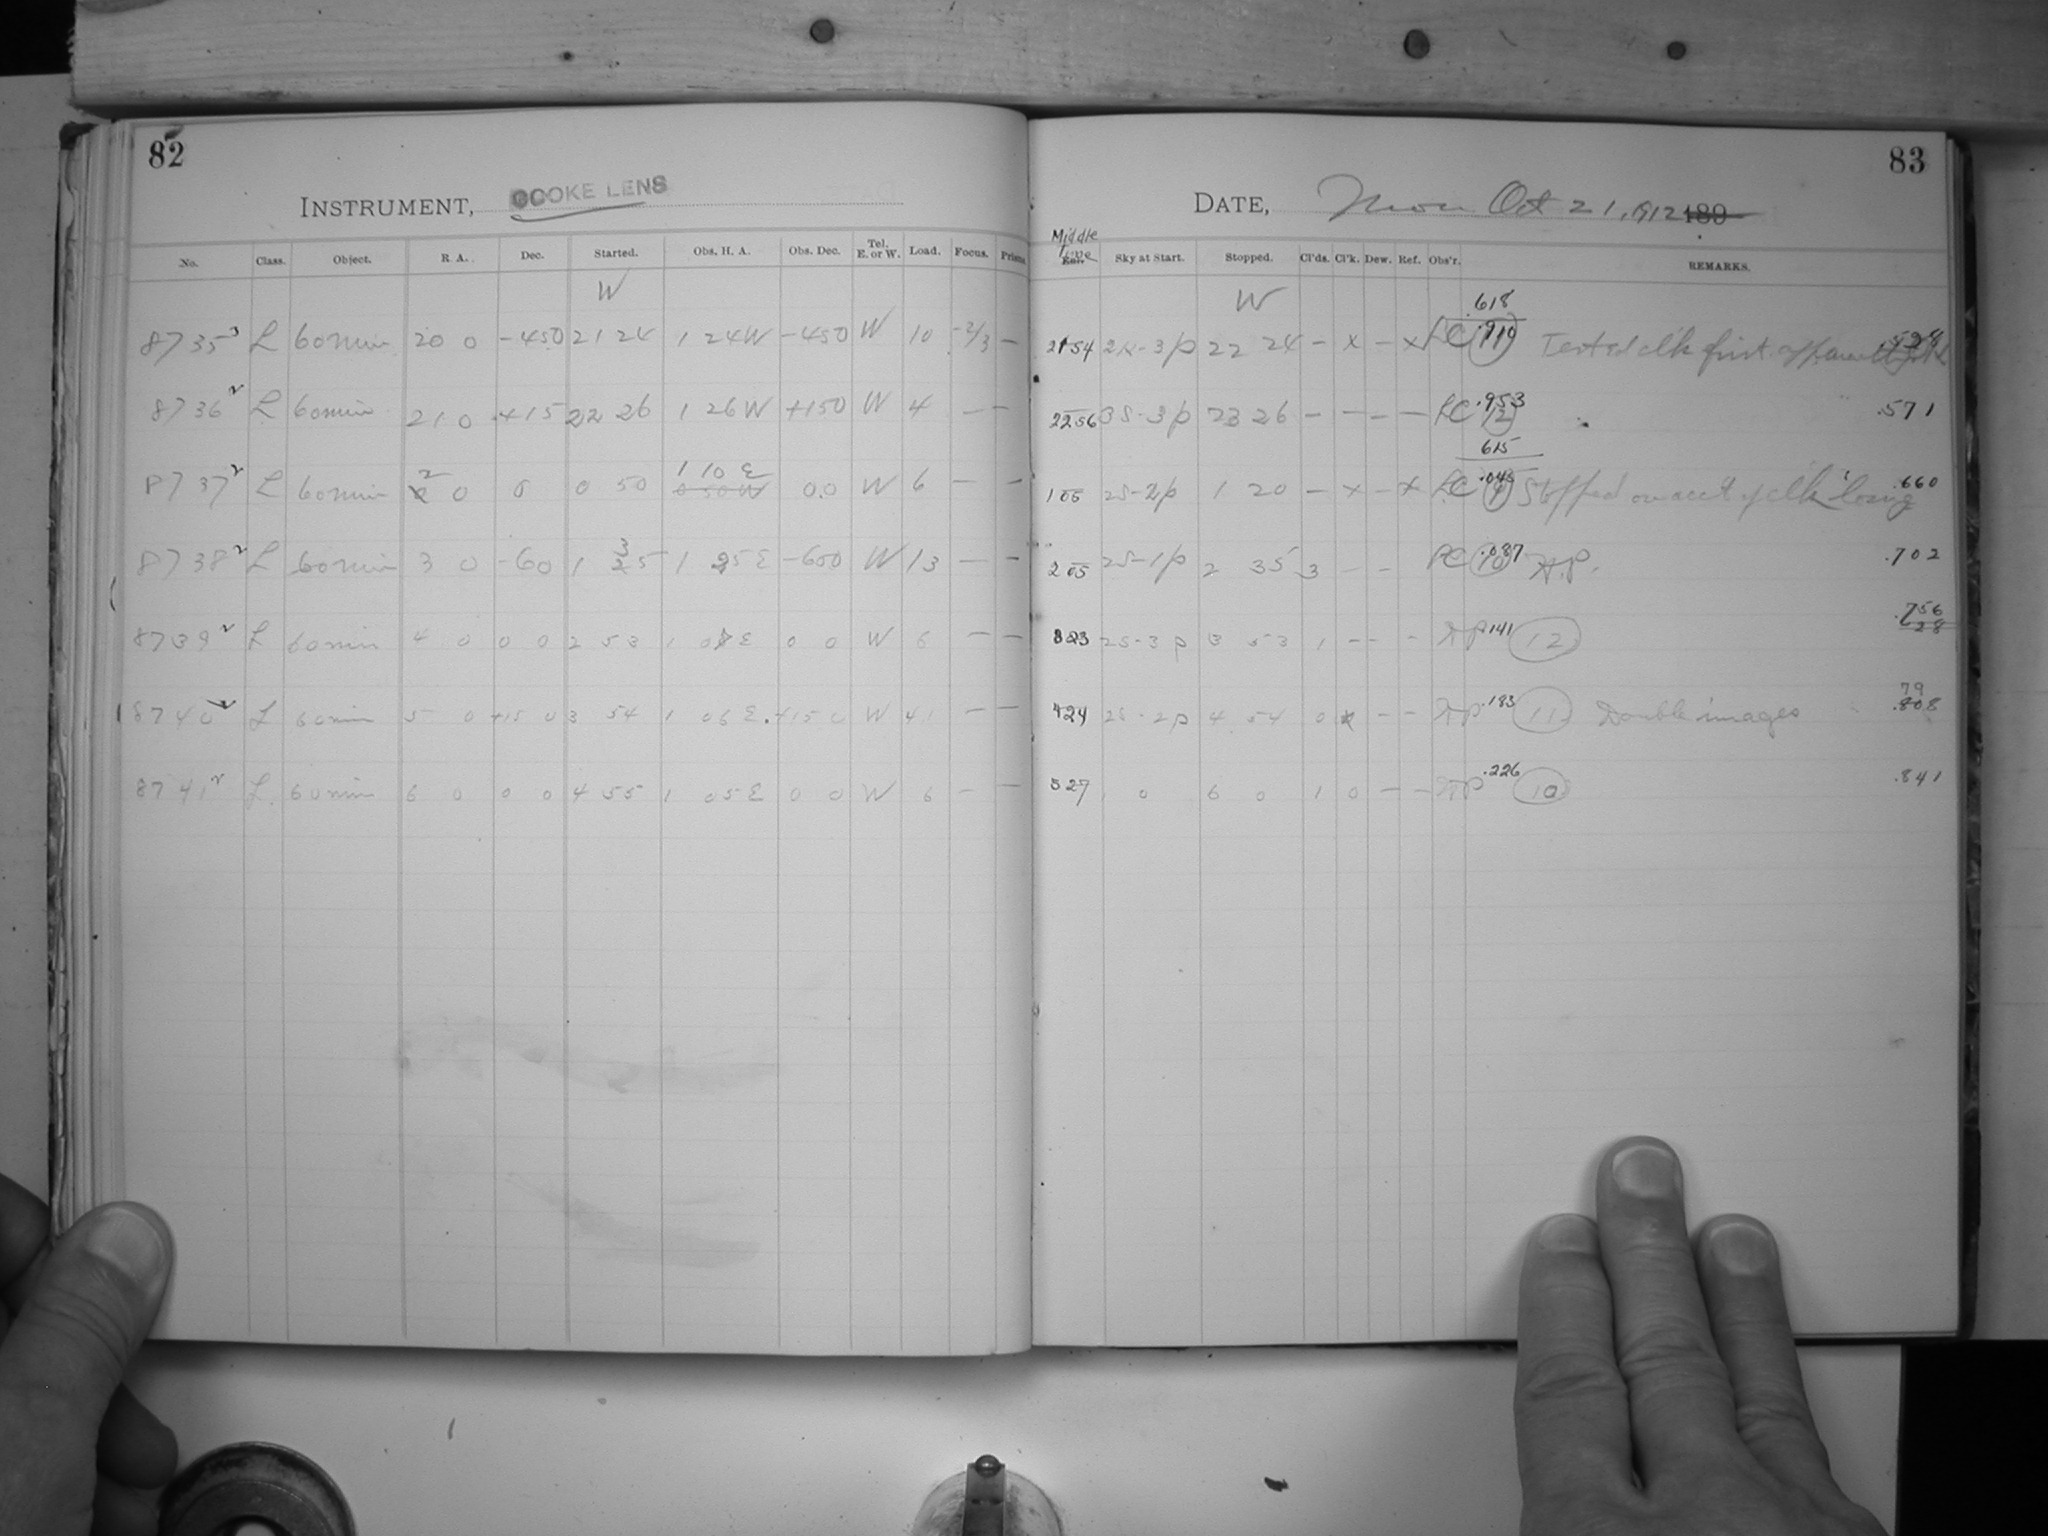 82
INSTRUMENT, COOKE LENS
No. Class. Object. R. A. Dec. Started. Obs. H. A. Obs. Dec. Tel. E. or W. Load. Focus. Prisms
W
8735 3 L 60 min 20 0 -450 21 24 1 24W -450 W 10 -2/3 -
8736 2 L 60 min 21 0 +15 22 26 1 26W +150 W 4 - -
8737 2 L 60 min 2 0 0 0 50 1 10 E 0 50 W 0.0 W 6 - -
8738 2 L 60 min 3 0 -60 1 35 1 25 E -600 W 13 - -
8739 2 L 60 min 4 0 0 0 2 53 1 07 E 0 0 W 6 - -
8740 2 L 60 min 5 0 +15 0 3 54 1 06 E +15 0 W 4 - -
8741 2 L 60 min 6 0 0 0 4 55 1 05 E 0 0 W 6 - -
83
DATE, Mon Oct 21, 1912 189
Middle Time Sky at Start. Stopped. Cl'ds. Cl'k. Dew. Ref. Obs'r. REMARKS.
W .618
21 54 3p 22 24 - x - x LC .910 Tested clk first .528
22 56 3S-3p 23 26 - - - - LC .953 12 .571
615
1 05 2S-2p 1 20 - x - x LC .045 9 Stopped on acct of clk losing .660
2 05 2S-1p 2 35 3 - - .087 10 .702
3 23 2S-3p 3 53 1 - - - .141 12 .756 28
4 24 2S-2p 4 54 0 - - .183 11 Double images 79 .808
5 27 0 6 0 1 0 - - .226 10 .841